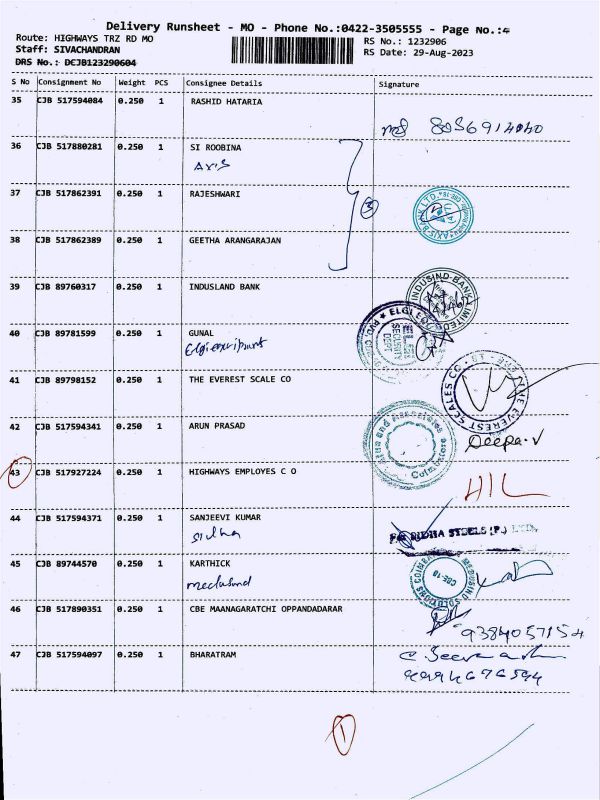 Delivery Runsheet - MO - Phone No.:0422-3505555 - Page No.:4
Route: HIGHWAYS TRZ RD MO
Staff: SIVACHANDRAN
DRS No.: DCJB123290604
RS No.: 1232906
RS Date: 29-Aug-2023
S No Consignment No Weight PCS Consignee Details Signature
35 CJB 517594084 0.250 1 RASHID HATARIA
8056914040
36 CJB 517880281 0.250 1 SI ROOBINA
Axis
37 CJB 517862391 0.250 1 RAJESHWARI
3
38 CJB 517862389 0.250 1 GEETHA ARANGARAJAN
39 CJB 89760317 0.250 1 INDUSLAND BANK
INDUSIND BANK LIMITED
40 CJB 89781599 0.250 1 GUNAL
Elgi equipment
SECURITY
41 CJB 89798152 0.250 1 THE EVEREST SCALE CO
THE EVEREST SCALES CO.
42 CJB 517594341 0.250 1 ARUN PRASAD
Deepa.V
Coimbatore
43 CJB 517927224 0.250 1 HIGHWAYS EMPLOYES C O
HIL
44 CJB 517594371 0.250 1 SANJEEVI KUMAR
sidha
45 CJB 89744570 0.250 1 KARTHICK
medusind
46 CJB 517890351 0.250 1 CBE MAANAGARATCHI OPPANDADARAR
9384057154
47 CJB 517594097 0.250 1 BHARATRAM
9994676594
1